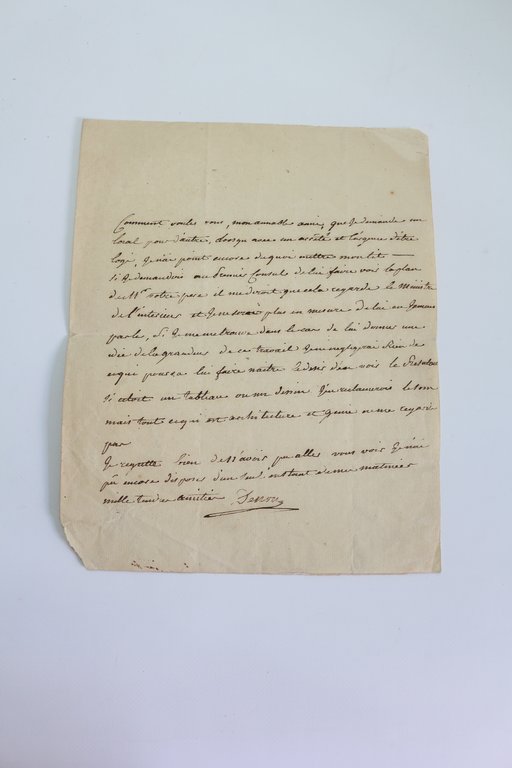 Comment voules vous, mon aimable amie, que Je demande un
local pour d'autre, lorsqu avec un arrêté et l'urgence d'être
logé, Je n'ai point encore de quoi mettre mon lit —
Si Je demandois au Premier Consul de lui faire voir le plan
de Mr votre pere il me diroit que cela regarde le Ministre
de l'interieur et Je ne serois plus en mesure de lui en
parler, Si Je me trouve dans le cas de lui donner une
idée de la grandeur de ce travail Je ne negligerai Rien de
ce qui pourra lui faire naitre le desir d'en voir le Resultat
Si cetoit un tableau ou un dessin J'en reclamerois le soin
mais tout ce qui est architecture et genie ne me regarde
pas
Je regrette bien de n'avoir pu aller vous voir Je n'ai
pu encore disposer d'un seul instant de mes matinées
mille tendre amitier Denon